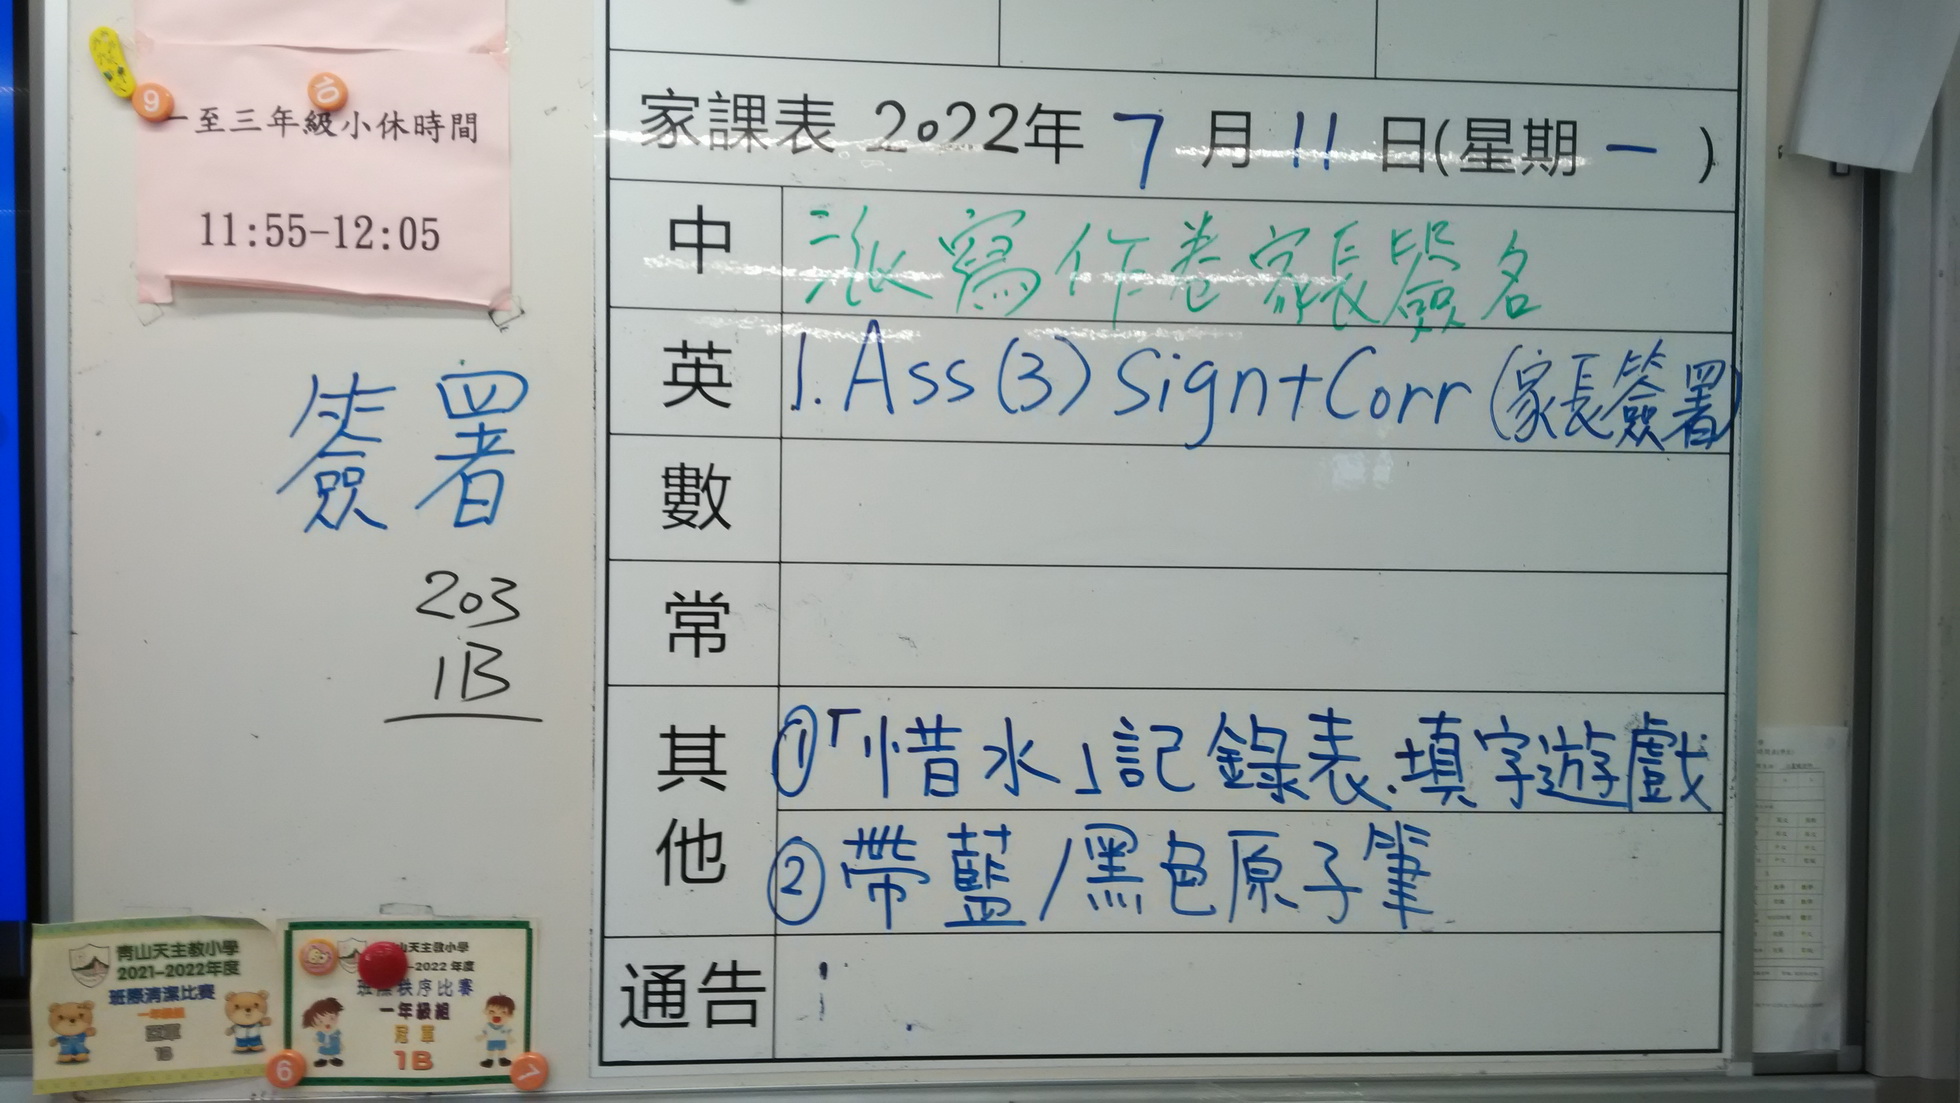 一至三年級小休時間
11:55-12:05
簽署
203
1B
家課表 2022年 7 月 11 日(星期 一 )
中 派寫作卷家長簽名
英 1. Ass (3) Sign+Corr (家長簽署)
數
常
其他 ①「惜水」記錄表.填字遊戲
②帶藍/黑色原子筆
通告 1.
青山天主教小學
2021-2022年度
班際清潔比賽
一年級組
1B
山天主教小學
-2022 年度
班際秩序比賽
一年級組
冠軍
1B
9
10
6
7